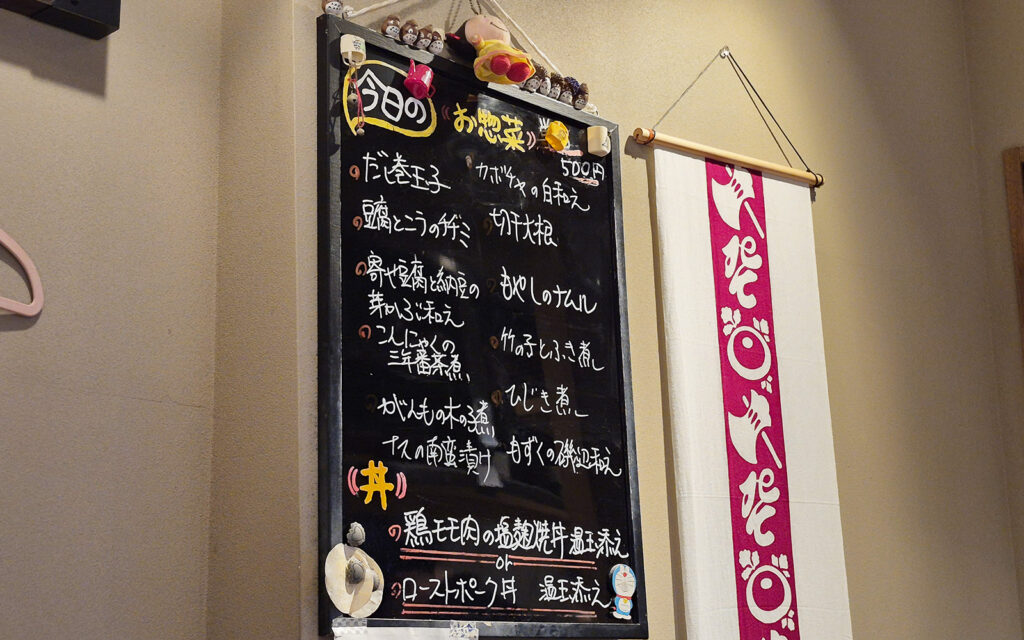 今日の
お惣菜
500円
だし巻玉子
豆腐とニラのチヂミ
寄せ豆腐と納豆の
芽かぶ和え
こんにゃくの
三年番茶煮
がんもの木の子煮
ナスの南蛮漬け
カボチャの白和え
切干大根
もやしのナムル
竹の子とふき煮
ひじき煮
もずくの磯辺和え
丼
鶏モモ肉の塩麹焼丼 温玉添え
or
ローストポーク丼 温玉添え